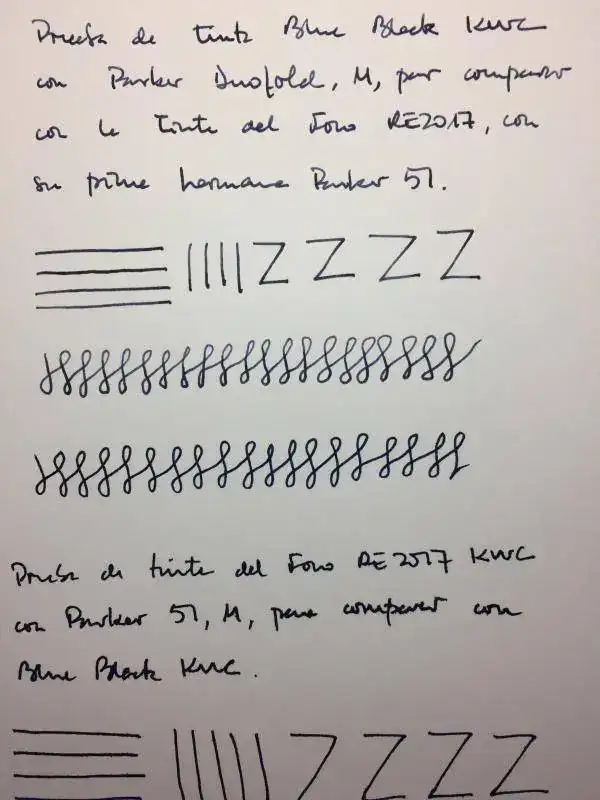 Prueba de tinta Blue Black KWC
con Parker Duofold, M, par comparar
con la tinta del Foro RE2017, con
su prima hermana Parker 51.
Z Z Z Z
Prueba de tinta del Foro RE2017 KWC
con Parker 51, M, para comparar con
Blue Black KWC.
Z Z Z Z